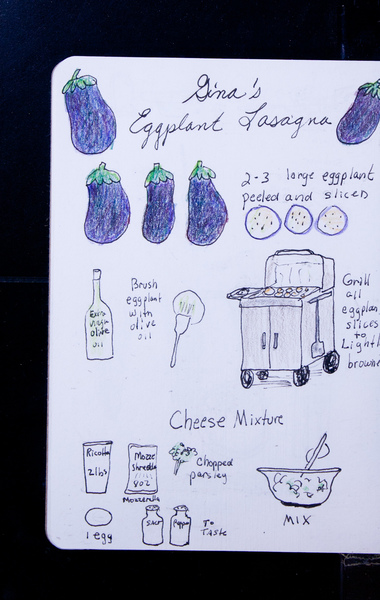 Gina's
Eggplant Lasagna
2-3 large eggplant
peeled and sliced
Extra
virgin
olive
oil
Brush
eggplant
with
olive
oil
Grill
all
eggplan
slices
to
Lightl
browne
Cheese Mixture
Ricotta
2lbs
Mozz
Shredded
8oz
Mozzerella
Chopped
parsley
1 egg
SALT
Pepper
To
Taste
MIX